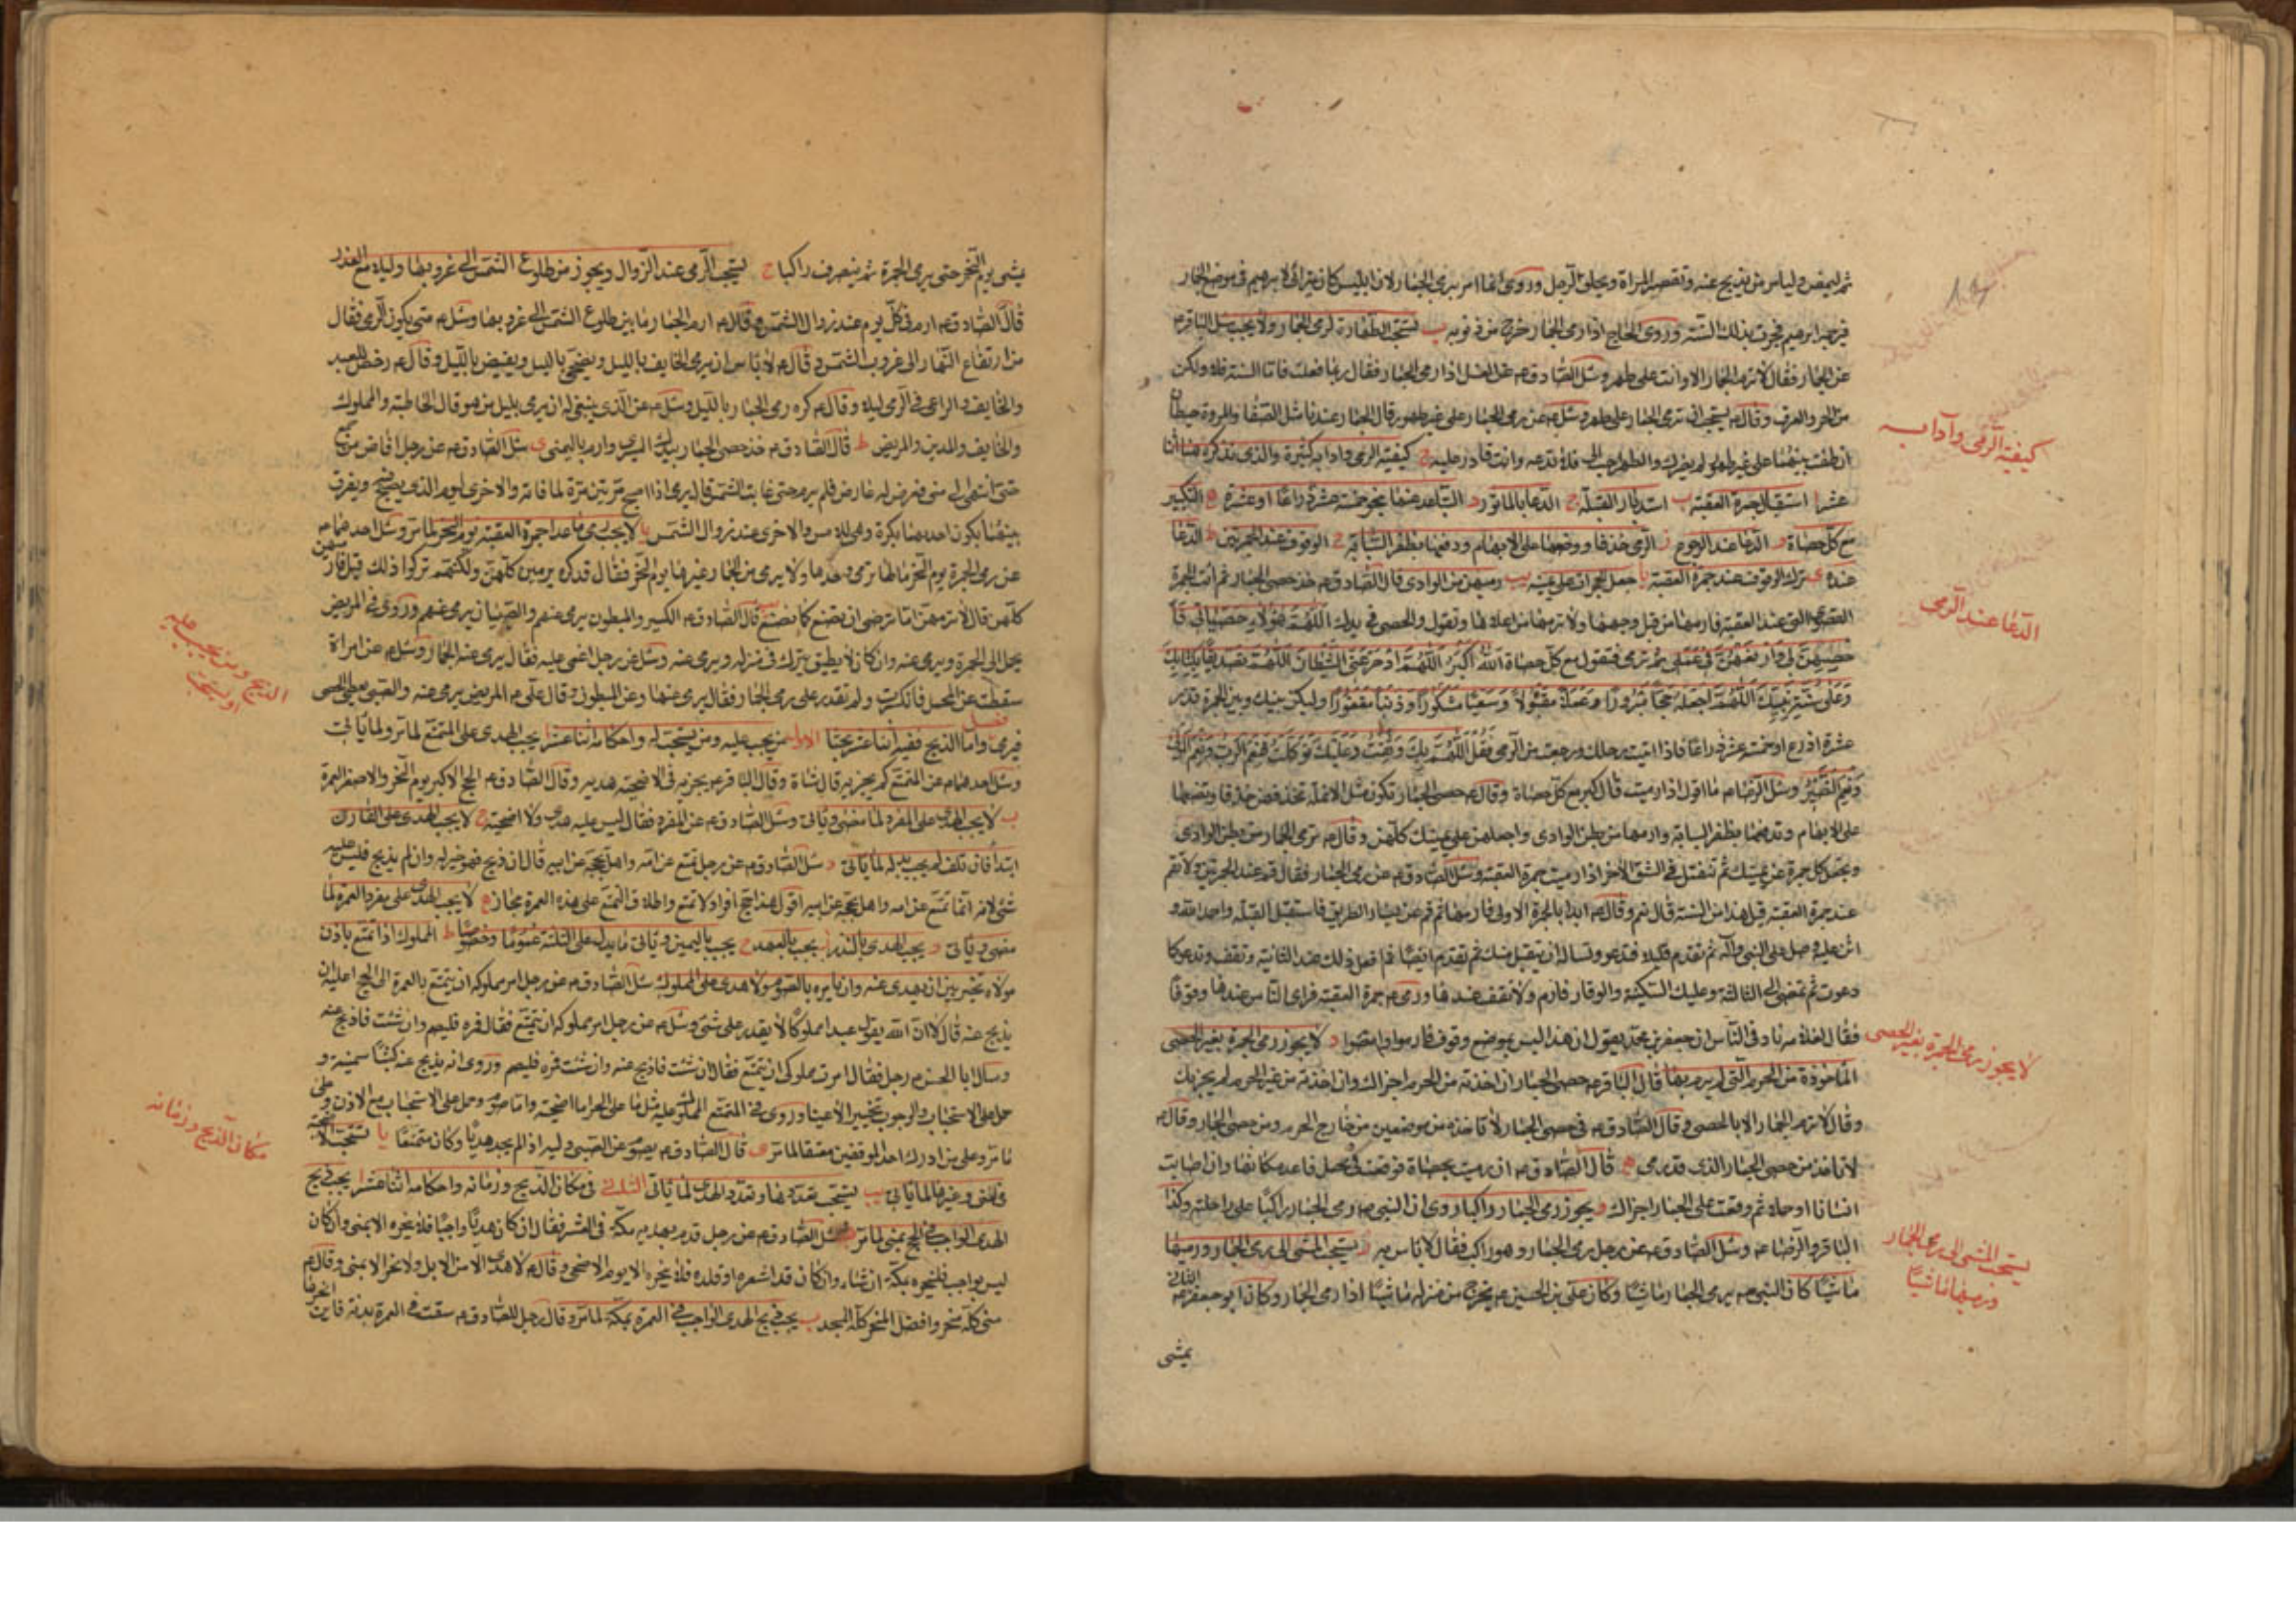 ثم ليمض وليامر من يذبح عنه وتقصر المراة ويحلق الرجل وروى انما امر برمى الجمار لان ابليس كان يتراآى لابرهيم في موضع الجمار
فرجمه ابرهيم فجرت بذلك السنة وروى الحاج اذا رمى الجمار خرج من ذنوبه ب تستحب الطهارة لرمى الجمار ولا يجب سئل الباقر ع
عن الجمار فقال لا ترم الجمار الا وانت على طهر وسئل الصادق ع عن الغسل اذا رمى الجمار فقال ربما فعلت فاما السنة فلا ولكن
من الحر والعرق وقال ع يستحب ان ترمى الجمار على طهر وسئل ع عن رمى الجمار على غير طهور قال الجمار عندنا مثل الصفا والمروة حيطان
ان طفت بينهما على غير طهور لم يضرك والطهر احب الى فلا تدعه وانت قادر عليه ج كيفية الرمى وآدابه كثيرة والذى نذكره هنا اثنا
كيفية الرمى وآدابه
عشر ا استقبال جمرة العقبة ب استدبار القبلة ج الدعا بالماثور د التباعد عنها بنحو خمسة عشر ذراعا او عشرة ه التكبير
مع كل حصاة و الدعا عند الرجوع ز الرمى خذفا ووضعها على الابهام ودفعها بظفر السبابة ح الوقوف عند الجمرتين ط الدعا
عنده ى ترك الوقوف عند جمرة العقبة يا جعل الجمرات على يمينه يب رميهن من الوادى قال الصادق ع خذ حصى الجمار ثم ائت الجمرة
القصوى التى عند العقبة فارمها من قبل وجهها ولا ترمها من اعلاها وتقول والحصى في يدك اللهم هؤلاء حصياتى فا
الدعا عند الرمى
حصهن لى وارفعهن في عملى ثم ترمى فتقول مع كل حصاة الله اكبر اللهم ادحر عنى الشيطان اللهم تصديقا بكتابك
وعلى سنة نبيك اللهم اجعله حجا مبرورا وعملا مقبولا وسعيا مشكورا وذنبا مغفورا وليكن بينك وبين الجمرة قدر
عشرة اذرع او خمسة عشر ذراعا فاذا اتيت رحلك ورجعت من الرمى فقل اللهم بك وثقت وعليك توكلت فنعم الرب ونعم المولى
ونعم النصير وسئل الرضا ع ما اقول اذا رميت قال كبر مع كل حصاة وقال ع حصى الجمار تكون مثل الانملة تخذفهن خذفا وتضعها
على الابهام وتدفعها بظفر السبابة وارمها من بطن الوادى واجعلهن على يمينك كلهن وقال ع ترمى الجمار من بطن الوادى
وتجعل كل جمرة عن يمينك ثم تنفتل في الشق الاخر اذا رميت جمرة العقبة وسئل الصادق ع عن رمى الجمار فقال قم عند الجمرتين ولا تقم
عند جمرة العقبة قيل هذا من السنة قال نعم وقال ع ابدا بالجمرة الاولى فارمها ثم قم عن يسار الطريق فاستقبل القبلة واحمد الله و
اثن عليه وصل على النبى وآله ثم تقدم قليلا فتدعو وتساله ان يتقبل منك ثم تقدم ايضا ثم افعل ذلك عند الثانية وتقف وتدعو كما
دعوت ثم تمضى الى الثالثة وعليك السكينة والوقار فارم ولا تقف عندها ورمى ع جمرة العقبة فراى الناس عندها وقوفا
فقال لغلامه ناد في الناس ان جعفر بن محمد يقول ان هذا ليس بموضع وقوف فارموا وامضوا د لا يجوز رمى الجمرة بغير الحصى
لا يجوز رمى الجمرة بغير الحصى
الماخوذة من الحرم التى لم يرم بها قال الباقر ع حصى الجمار ان اخذته من الحرم اجزاك وان اخذته من غير الحرم لم يجزيك
وقال لا ترم الجمار الا بالحصى وقال الصادق ع في حصى الجمار لا تاخذه من موضعين من خارج الحرم ومن حصى الجمار وقال ع
لا تاخذ من حصى الجمار الذى قد رمى ه قال الصادق ع ان رميت بحصاة فوقعت في محمل فاعد مكانها وان اصابت
انسانا او جملا ثم وقعت على الجمار اجزاك و يجوز رمى الجمار راكبا روى ان النبى ص رمى الجمار راكبا على راحلته وكذا
الباقر والرضا ع وسئل الصادق ع عن رجل رمى الجمار وهو راكب فقال لا باس به ز يستحب المشى الى رمى الجمار ورميها
يستحب المشى الى رمى الجمار
ورميها ماشيا
ماشيا كان النبى ص يرمى الجمار ماشيا وكان على بن الحسين ع يخرج من منزله ماشيا اذا رمى الجمار وكان ابو جعفر ع
يمشى
يمشى يوم النحر حتى يرمى الجمرة ثم ينصرف راكبا ح يستحب الرمى عند الزوال ويجوز من طلوع الشمس الى غروبها وليلا مع العذر
قال الصادق ع ارم في كل يوم عند زوال الشمس وقال ع ارم الجمار ما بين طلوع الشمس الى غروبها وسئل ع متى يكون الرمى فقال
من ارتفاع النهار الى غروب الشمس وقال ع لا باس ان يرمى الخايف بالليل ويضحى بالليل ويفيض بالليل وقال ع رخص للعبد
والخايف والراعى في الرمى ليلا وقال ع كره رمى الجمار بالليل وسئل ع عن الذى ينبغى له ان يرمى بليل من هو قال الحاطبة والمملوك
والخايف والمدين والمريض ط قال الصادق ع خذ حصى الجمار بيدك اليسرى وارم باليمنى ى سئل الصادق ع عن رجل افاض من جمع
حتى انتهى الى منى فعرض له عارض فلم يرم حتى غابت الشمس قال يرمى اذا اصبح مرتين مرة لما فاته والاخرى ليومه الذى يصبح ويفرق
بينهما يكون احدهما بكرة وهى للامس والاخرى عند زوال الشمس يا لا يجب رمى ما عدا جمرة العقبة يوم النحر لما مر وسئل احدهما ع
عن رمى الجمرة يوم النحر مالها ترمى وحدها ولا يرمى من الجمار غيرها يوم النحر فقال قد كن يرمين كلهن ولكنهم تركوا ذلك قيل فارميهن
كلهن قال لا ترمهن اما ترضى ان تصنع كما نصنع يب قال الصادق ع الكسير والمبطون يرمى عنهم والصبيان يرمى عنهم وروى في المريض
يحمل الى الجمرة ويرمى عنه وان كان لا يطيق يترك في منزله ويرمى عنه وسئل عن رجل اغمى عليه فقال يرمى عنه الجمار وسئل ع عن امراة
سقطت عن المحمل فانكسرت ولم تقدر على رمى الجمار فقال يرمى عنها وعن المبطون وقال على ع المريض يرمى عنه والصبى يعطى الحصى
الذبح ومن يجب عليه
او يستحب
فيرمى فصل واما الذبح ففيه اثنا عشر بحثا الاول من يجب عليه ومن يستحب له واحكامه اثنا عشر ا يجب الهدى على المتمتع لما مر ولما ياتى
وسئل احدهما ع عن المتمتع كم يجزيه قال شاة وقال الباقر ع يجزيه في الاضحية هديه وقال الصادق ع الحج الاكبر يوم النحر والاصغر العمرة
ب لا يجب الهدى على المفرد لما مضى وياتى وسئل الصادق ع عن المفرد فقال ليس عليه هدى ولا اضحية ج لا يجب الهدى على القارن
ابتدا فان تلف لم يجب بدله لما ياتى د سئل الصادق ع عن رجل تمتع عن امه واهل بحجة عن ابيه قال ان ذبح فهو خير له وان لم يذبح فليس عليه
شئ لانه انما تمتع عن امه واهل بحجة عن ابيه اقول هذا حج افراد لا تمتع واطلاق التمتع على هذه العمرة مجاز ه لا يجب الهدى على مفرد العمرة لما
مضى وياتى و يجب الهدى بالنذر ز يجب بالعهد ح يجب باليمين وياتى ما يدل على الثلثة عموما وخصوصا ط المملوك اذا تمتع باذن
مولاه تخير بين ان يهدى عنه وان يامره بالصوم ولا هدى على المملوك سئل الصادق ع عن رجل امر مملوكه ان يتمتع بالعمرة الى الحج اعليه ان
يذبح عنه قال لا ان الله يقول عبدا مملوكا لا يقدر على شئ وسئل ع عن رجل امر مملوكه ان يتمتع فقال فمره فليصم وان شئت فاذبح عنه
وسال ابا الحسن ع رجل فقال امرت مملوكى ان يتمتع فقال ان شئت فاذبح عنه وان شئت فمره فليصم وروى انه يذبح عنه كبشا سمينة و
حمل على الاستحباب والوجوب تخييرا لا عينا وروى في المتمتع المملوك عليه مثل ما على الحر اما اضحية واما صوم وحمل على الاستحباب مع الاذن وعلى
ما مر وعلى من ادرك احد الموقفين معتقا لما مر ى قال الصادق ع يصوم عن الصبى وليه اذا لم يجد هديا وكان متمتعا يا تستحب الاضحية
مكان الذبح وزمانه
في منى وغيرها لما ياتى يب يستحب تعددها وتعدد الهدى لما ياتى الثانى في مكان الذبح وزمانه واحكامه اثنا عشر ا يجب ذبح
الهدى الواجب في الحج بمنى لما مر وسئل الصادق ع عن رجل قدم بهديه مكة في العشر فقال ان كان هديا واجبا فلا ينحره الا بمنى وان كان
ليس بواجب فلينحره بمكة ان شاء وان كان قد اشعره او قلده فلا ينحره الا يوم الاضحى وقال ع لا هدى الا من الابل ولا نحر الا بمنى وقال ع
منى كله منحر وافضل المنحر كله المسجد ب يجب ذبح الهدى الواجب في العمرة بمكة لما مر وقال رجل للصادق ع سقت في العمرة بدنة فاين انحرها